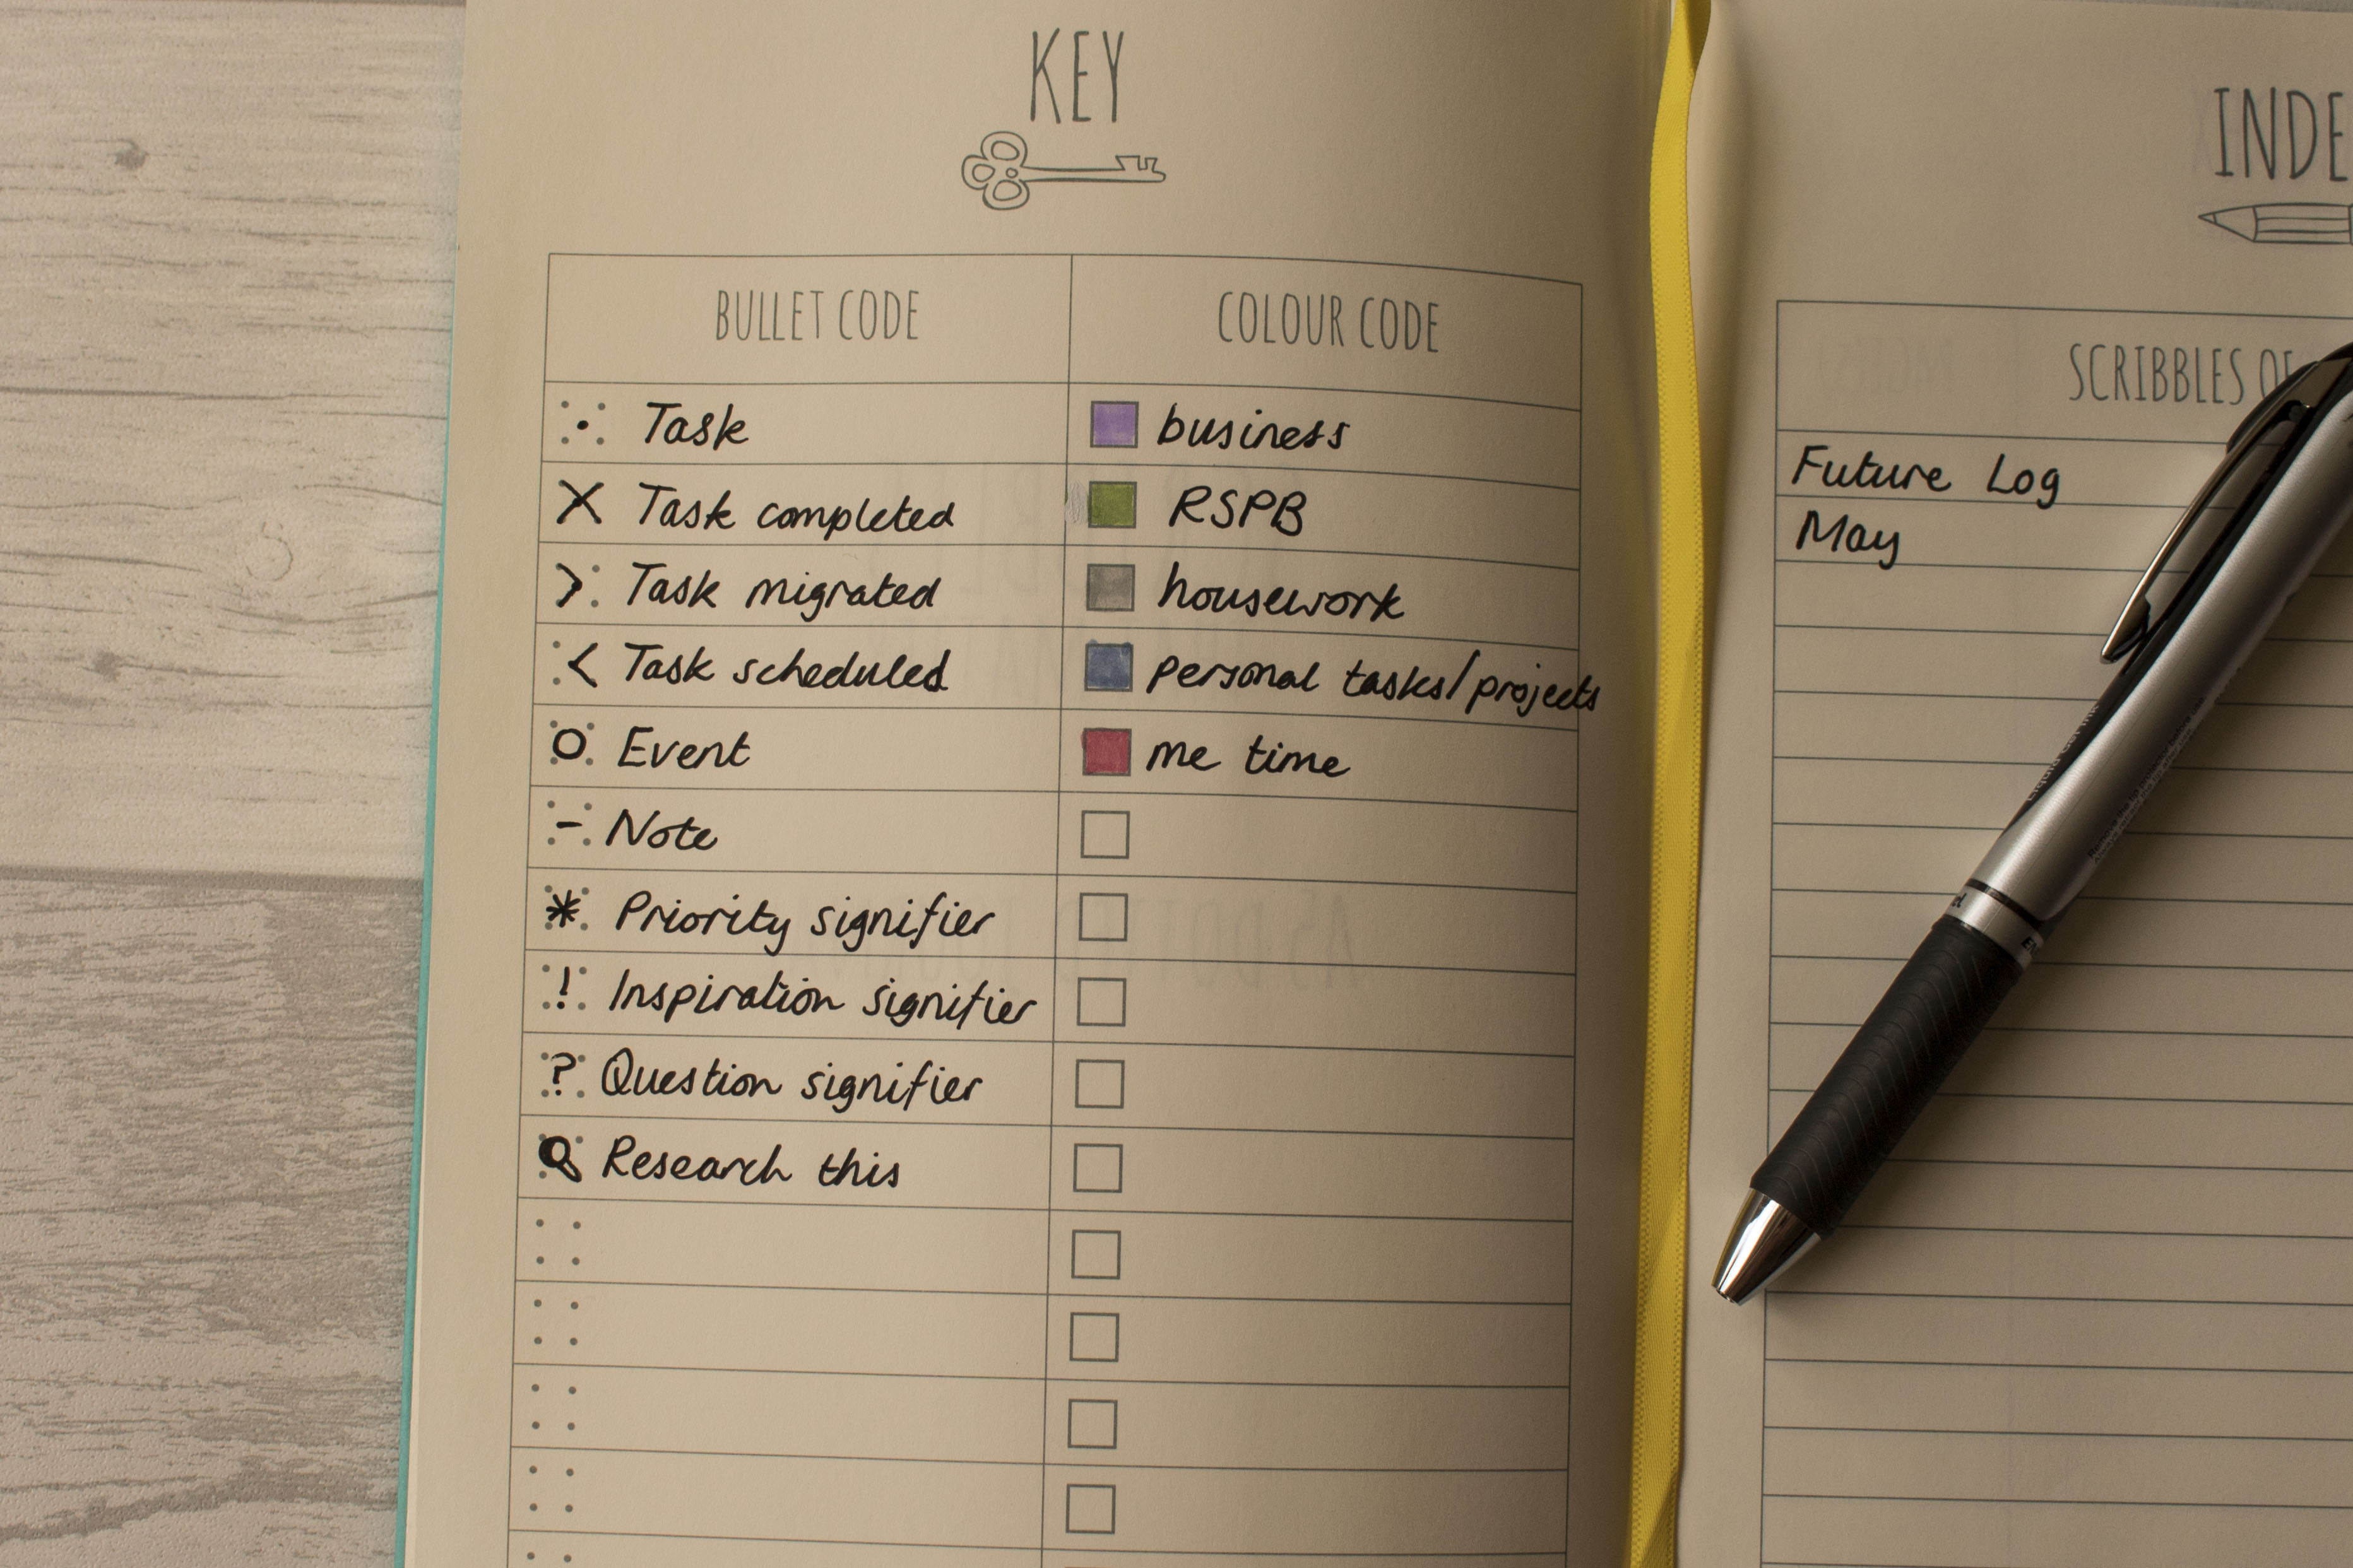 KEY
BULLET CODE
COLOUR CODE
Task
business
X Task completed
RSPB
> Task migrated
housework
< Task scheduled
personal tasks/projects
O Event
me time
- Note
* Priority signifier
! Inspiration signifier
? Question signifier
Research this
INDE
SCRIBBLES OF
Future Log
May